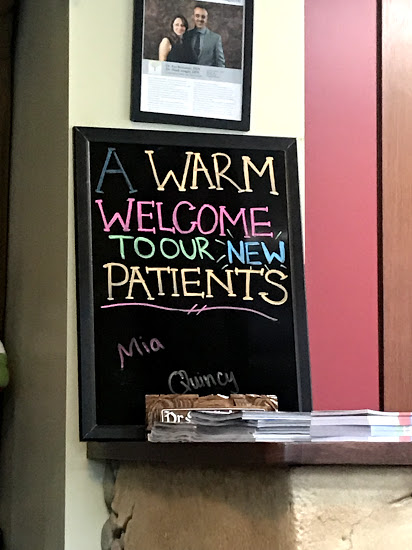 A WARM
WELCOME
TO OUR NEW
PATIENTS
Mia
Quincy
Dr